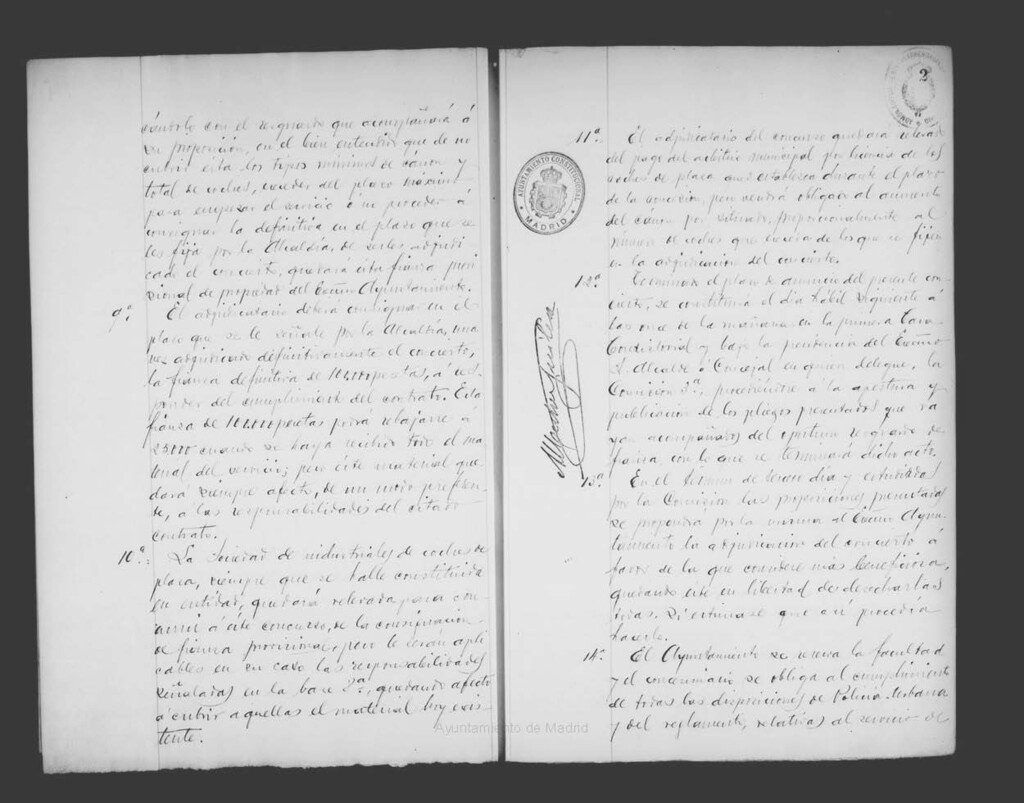 cándolo con el resguardo que acompañará á
su proposición, en el bien entendido que de no
cubrir ésta los tipos mínimos de cánon y
total de coches, exceder del plazo máximo
para empezar el servicio ó no proceder á
consignar la definitiva en el plazo que se
les fija por la Alcaldía, de serles adjudi
cado el concierto, quedará esta fianza provi
sional de propiedad del Excmo Ayuntamiento.
9ª. El adjudicatario deberá consignar en el
plazo que se le señale por la Alcaldía, una
vez adjudicado definitivamente el concierto,
la fianza definitiva de pesetas, á res
ponder del cumplimiento del contrato. Esta
fianza de pesetas podrá rebajarse á
25000 cuando se haya recibido todo el ma
terial del servicio; pero éste material que
dará siempre afecto, de un modo preferen
te, a las responsabilidades del citado
contrato.
10ª. La Sociedad de industriales de coches de
plaza, siempre que se halle constituida
en entidad, quedará relevada para con
currir á éste concurso, de la consignación
de fianza provisional, pero le serán apli
cables en su caso las responsabilidades
señaladas en la base 8ª, quedando afecto
á cubrir aquellas el material hoy exis
tente.
2
AYUNTAMIENTO CONSTITUCIONAL
MADRID
11ª. El adjudicatario del concurso quedará relevado
del pago del arbitrio municipal por licencia de los
coches de plaza que establezca durante el plazo
de la concesión, pero vendrá obligado al aumento
del cánon por situado, proporcionalmente al
número de coches que exceda de los que se fijen
en la adjudicación del concierto.
12ª. Terminado el plazo de anuncio del presente con
cierto, se constituirá el día hábil siguiente á
las once de la mañana en la primera Casa
Consistorial y bajo la presidencia del Excmo
Sr. Alcalde ó Concejal en quien delegue, la
Comisión 3ª, procediéndose á la apertura y
publicación de los pliegos presentados que va
yan acompañados del oportuno resguardo de
fianza, con lo que se terminará dicho acto.
13ª. En el término de tercer día y estudiadas
por la Comisión las proposiciones presentadas
se propondrá por la misma al Excmo Ayun
tamiento la adjudicación del concierto á
favor de la que considere más beneficiosa,
quedando éste en libertad de desechar las
todas. Si estimase que así procedía
hacerlo.
14ª. El Ayuntamiento se reserva la facultad
y el concesionario se obliga al cumplimiento
de todas las disposiciones de Policía Urbana
y del reglamento, relativas al servicio de
Ayuntamiento de Madrid